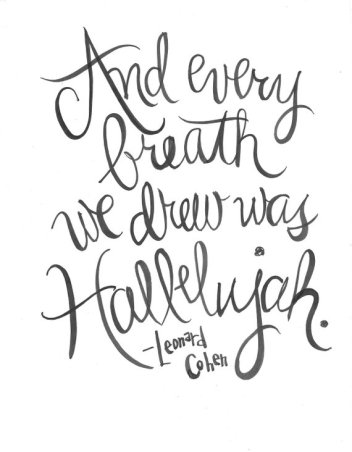 And every
breath
we drew was
Hallelujah.
-Leonard
Cohen